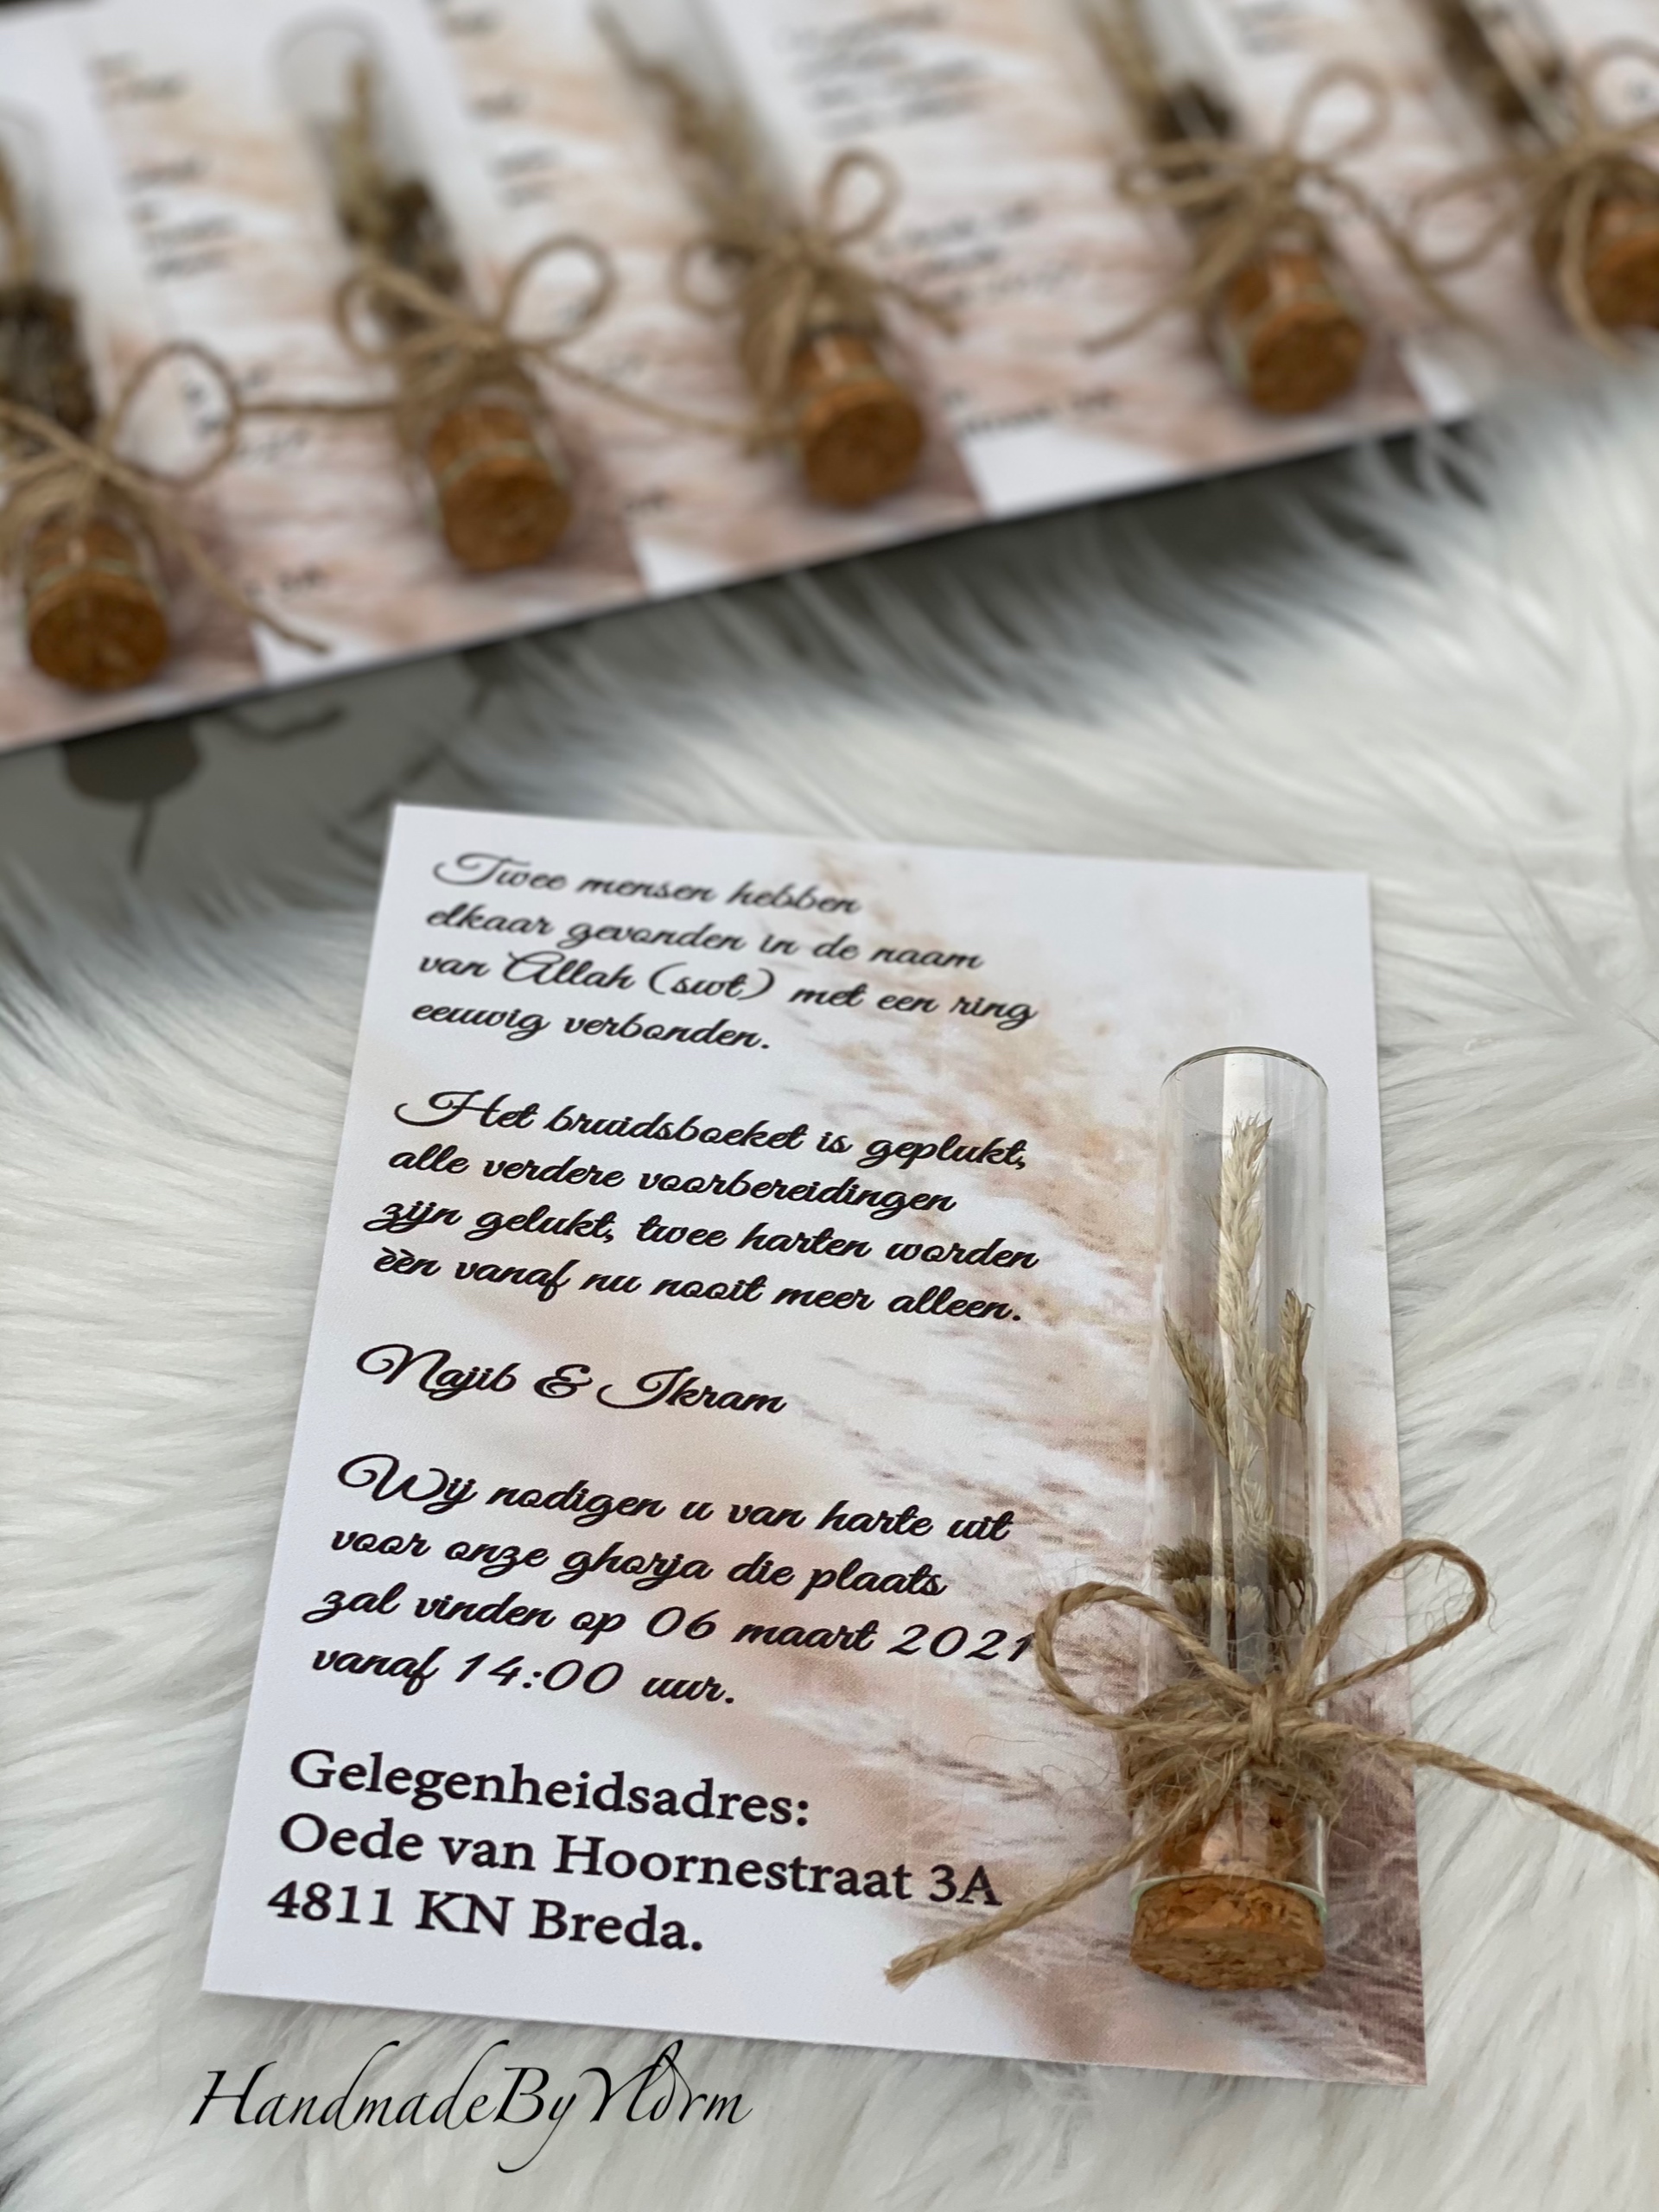 Twee mensen hebben
elkaar gevonden in de naam
van Allah (swt) met een ring
eeuwig verbonden.
Het bruidsboeket is geplukt,
alle verdere voorbereidingen
zijn gelukt, twee harten worden
èèn vanaf nu nooit meer alleen.
Najib & Ikram
Wij nodigen u van harte uit
voor onze ghorja die plaats
zal vinden op 06 maart 2021
vanaf 14:00 uur.
Gelegenheidsadres:
Oede van Hoornestraat 3A
4811 KN Breda.
HandmadeByYldrm